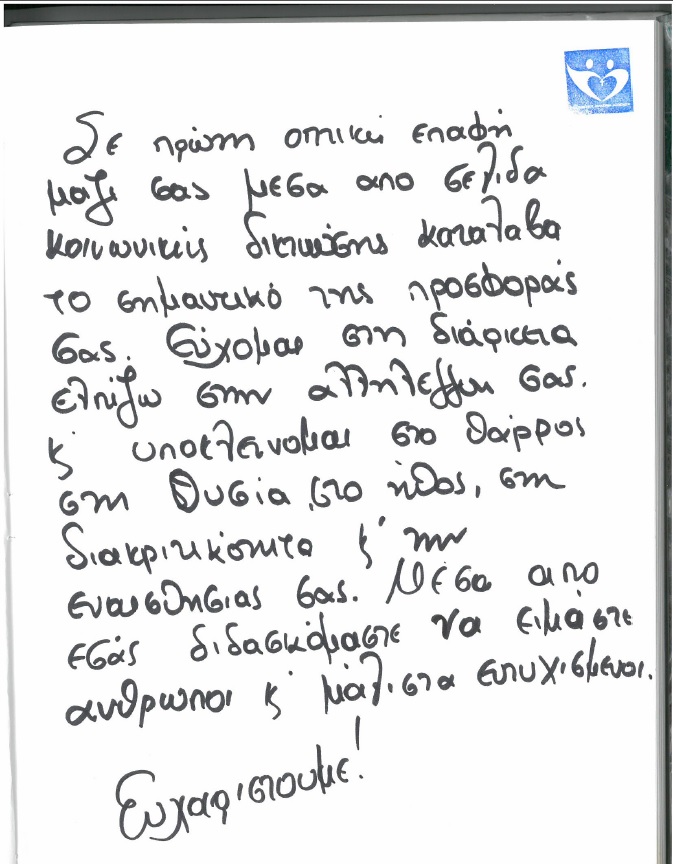 Σε πρώτη οπτική επαφή
μαζί σας μεσα απο σελιδα
κοινωνικής δικτύωσης καταλαβα
το σημαντικό της προσφοράς
σας. Εύχομαι στη διάρκεια
ελπίζω στην αλληλεγγύη σας.
κ' υποκλεινομαι στο θάρρος
στη θυσία, στο ήθος, στη
διακριτικότητα κ' την
εναισθησιας σας. Μέσα απο
εσάς διδασκόμαστε να ειμάστε
ανθρωποι κ' μάλιστα ευτυχισμενοι.
Ευχαριστουμε!